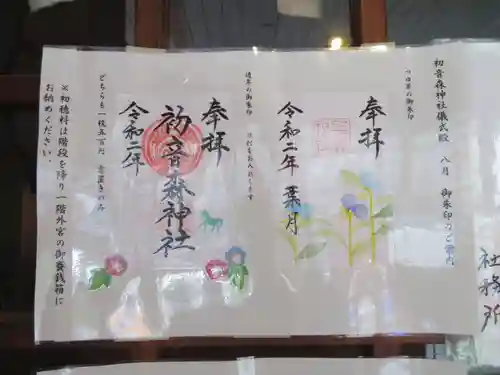 初音森神社儀式殿 八月 御朱印のご案内
つゆ草の御朱印
奉拝
令和二年 葉月
通常の御朱印
奉拝
初音森神社
令和二年
どちらも一枚五百円 書置きのみ
※初穂料は階段を降り一階外宮の御賽銭箱に
お納めください。
社務所